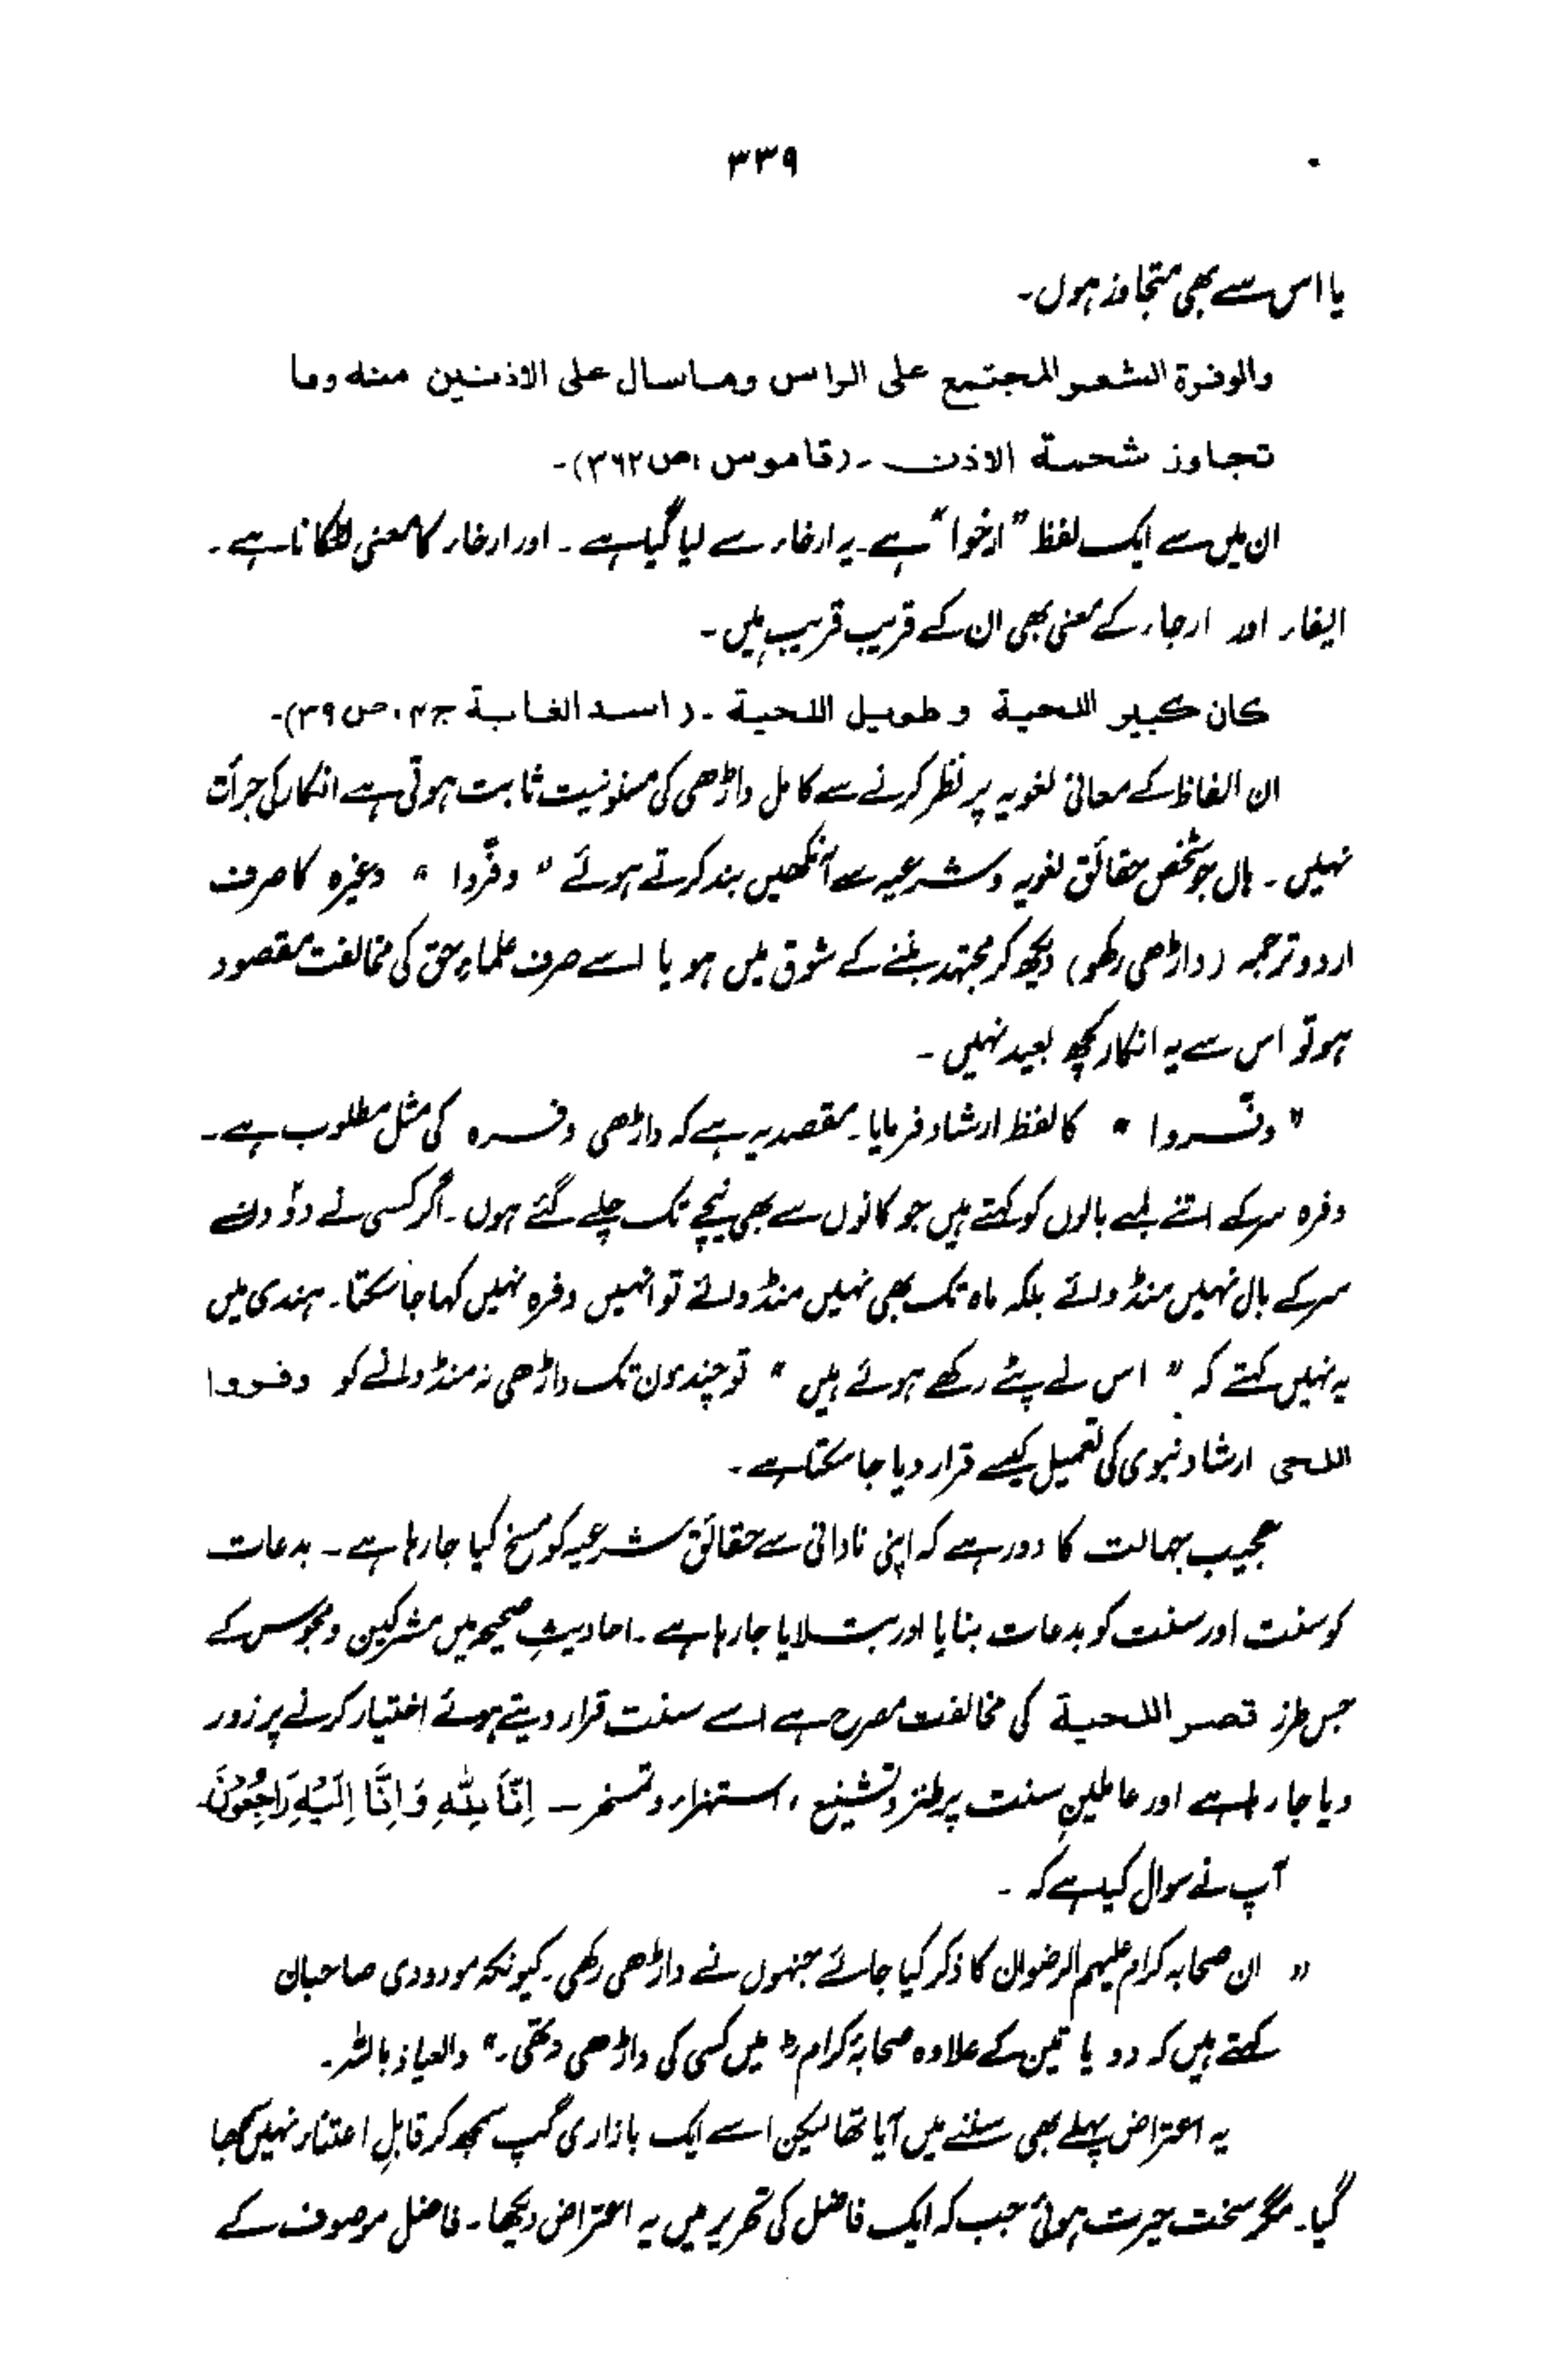 ۳۳۹
یا اس سے بھی متجاوز ہوں۔
والوفرة الشعر المجتمع على الراس وما سال على الاذنين منه وما
تجاوز شحمة الاذن ۔ (قاموس، ص ۳۶۲)۔
ان میں سے ایک لفظ "ارخوا" ہے۔ یہ ارخاء سے لیا گیا ہے۔ اور ارخاء کا معنی لٹکانا ہے۔
ایفاء اور ارجاء کے معنی بھی ان کے قریب قریب ہیں۔
كان كبير اللحية و طويل اللحية ۔ (اسد الغابة ج ۴، ص ۳۹)۔
ان الفاظ کے معانی لغویہ پر نظر کرنے سے کامل داڑھی کی مسنونیت ثابت ہوتی ہے انکار کی جرأت
نہیں ۔ ہاں جو شخص حقائق لغویہ و شرعیہ سے آنکھیں بند کرتے ہوئے "وفّروا" وغیرہ کا صرف
اردو ترجمہ (داڑھی رکھو) دیکھ کر مجتہد بننے کے شوق میں ہو یا اسے صرف علماءِ حق کی مخالفت مقصود
ہو تو اس سے یہ انکار کچھ بعید نہیں ۔
"وفّروا" کا لفظ ارشاد فرمایا۔ مقصد یہ ہے کہ داڑھی وفرہ کی مثل مطلوب ہے۔
وفرہ سر کے اتنے لمبے بالوں کو کہتے ہیں جو کانوں سے بھی نیچے تک چلے گئے ہوں۔ اگر کسی نے دو دن
سر کے بال نہیں منڈوائے بلکہ ماہ تک بھی نہیں منڈوائے تو انہیں وفرہ نہیں کہا جا سکتا۔ ہندی میں
یہ نہیں کہتے کہ "اس نے پٹے رکھے ہوئے ہیں" تو چند دن تک داڑھی نہ منڈوانے کو وفروا
اللحی ارشاد نبوی کی تعمیل کیسے قرار دیا جا سکتا ہے۔
عجیب جہالت کا دور ہے کہ اپنی نادانی سے حقائق شرعیہ کو مسخ کیا جا رہا ہے۔ بدعات
کو سنت اور سنت کو بدعات بنایا اور بتلایا جا رہا ہے۔ احادیثِ صحیحہ میں مشرکین و مجوس کے
جس طرز قصر اللحیة کی مخالفت مصرح ہے اسے سنت قرار دیتے ہوئے اختیار کرنے پر زور
دیا جا رہا ہے اور عاملینِ سنت پر طنز و تشنیع ، استہزاء و تمسخر ــ اِنَّا لِلّٰهِ وَ اِنَّا اِلَیْهِ رَاجِعُوْنَ۔
آپ نے سوال کیا ہے کہ ۔
" ان صحابہ کرام علیہم الرضوان کا ذکر کیا جائے جنہوں نے داڑھی رکھی۔ کیونکہ مودودی صاحبان
کہتے ہیں کہ دو یا تین کے علاوہ صحابہ کرامؓ میں کسی کی داڑھی نہ تھی۔" والعیاذ باللہ۔
یہ اعتراض پہلے بھی سننے میں آیا تھا لیکن اسے ایک بازاری گپ سمجھ کر قابلِ اعتناء نہیں سمجھا
گیا۔ مگر سخت حیرت ہوئی جب کہ ایک فاضل کی تحریر میں یہ اعتراض دیکھا۔ فاضل موصوف کے